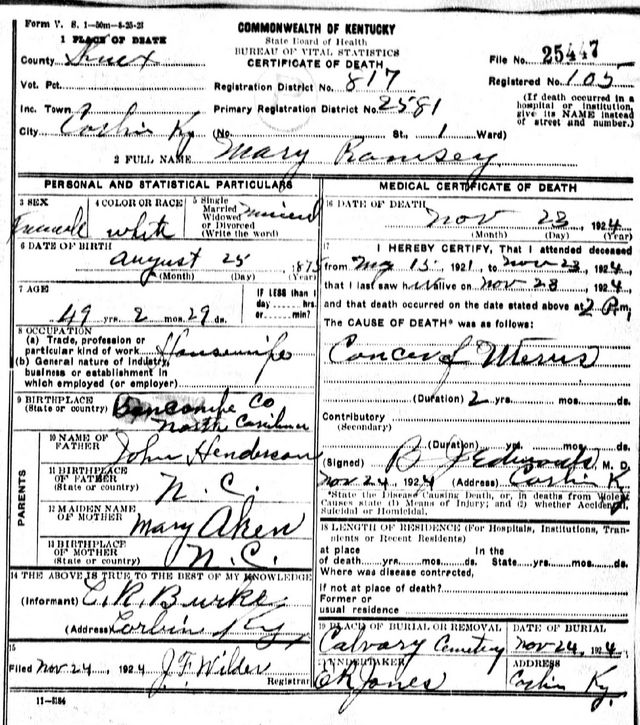 Form V. S. 1—50m—8-25-23
COMMONWEALTH OF KENTUCKY
State Board of Health
BUREAU OF VITAL STATISTICS
CERTIFICATE OF DEATH
1 PLACE OF DEATH
County Knox
File No. 25447
Vot. Pct.
Registration District No. 817
Registered No. 105
Inc. Town
Primary Registration District No. 2581
(If death occurred in a hospital or institution, give its NAME instead of street and number.)
City Corbin Ky (No. St., 1 Ward)
2 FULL NAME Mary Ramsey
PERSONAL AND STATISTICAL PARTICULARS
3 SEX
Female
4 COLOR OR RACE
white
5 Single
Married
Widowed
or Divorced
(Write the word)
6 DATE OF BIRTH
August 25 1875
(Month) (Day) (Year)
7 AGE
49 yrs. 2 mos. 29 ds.
IF LESS than 1
day hrs.
or min?
8 OCCUPATION
(a) Trade, profession or
particular kind of work Housewife
(b) General nature of industry,
business or establishment in
which employed (or employer)
9 BIRTHPLACE
(State or country) Co
North
PARENTS
10 NAME OF
FATHER John Henderson
11 BIRTHPLACE
OF FATHER
(State or country) N. C.
12 MAIDEN NAME
OF MOTHER Mary Aken
13 BIRTHPLACE
OF MOTHER
(State or country) N. C.
14 THE ABOVE IS TRUE TO THE BEST OF MY KNOWLEDGE
(Informant) C. R. Burke
(Address) Corbin Ky
15
Filed Nov 24, 1924 J F Wilder
Registrar
11-3184
MEDICAL CERTIFICATE OF DEATH
16 DATE OF DEATH
Nov 23, 1924
(Month) (Day) (Year)
17
I HEREBY CERTIFY, That I attended deceased
from May 15 1921, to Nov 23, 1924
that I last saw h alive on Nov 23, 1924,
and that death occurred on the date stated above at 2 P.m.
The CAUSE OF DEATH* was as follows:
Cancer of Uterus
(Duration) 2 yrs. mos. ds.
Contributory
(Secondary)
(Duration) yrs. mos. ds.
(Signed) B J Edwards M. D.
Nov 24, 1924 (Address) Corbin K
*State the Disease Causing Death, or, in deaths from Violent
Causes state (1) Means of Injury; and (2) whether Accidental,
Suicidal or Homicidal.
18 LENGTH OF RESIDENCE (For Hospitals, Institutions, Tran-
sients or Recent Residents)
at place In the
of death yrs. mos. ds. State yrs. mos. ds.
Where was disease contrected,
if not at place of death?
Former or
usual residence
19 PLACE OF BURIAL OR REMOVAL
Calvary Cemetery
DATE OF BURIAL
Nov 24, 1924
UNDERTAKER
C R Jones
ADDRESS
Corbin Ky.